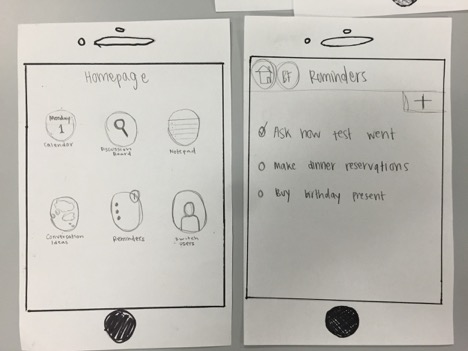 Homepage
Monday
1
Calendar
Discussion
Board
Notepad
Conversation
Ideas
Reminders
Switch
Users
BF
Reminders
+
Ask how test went
Make dinner reservations
Buy birthday present